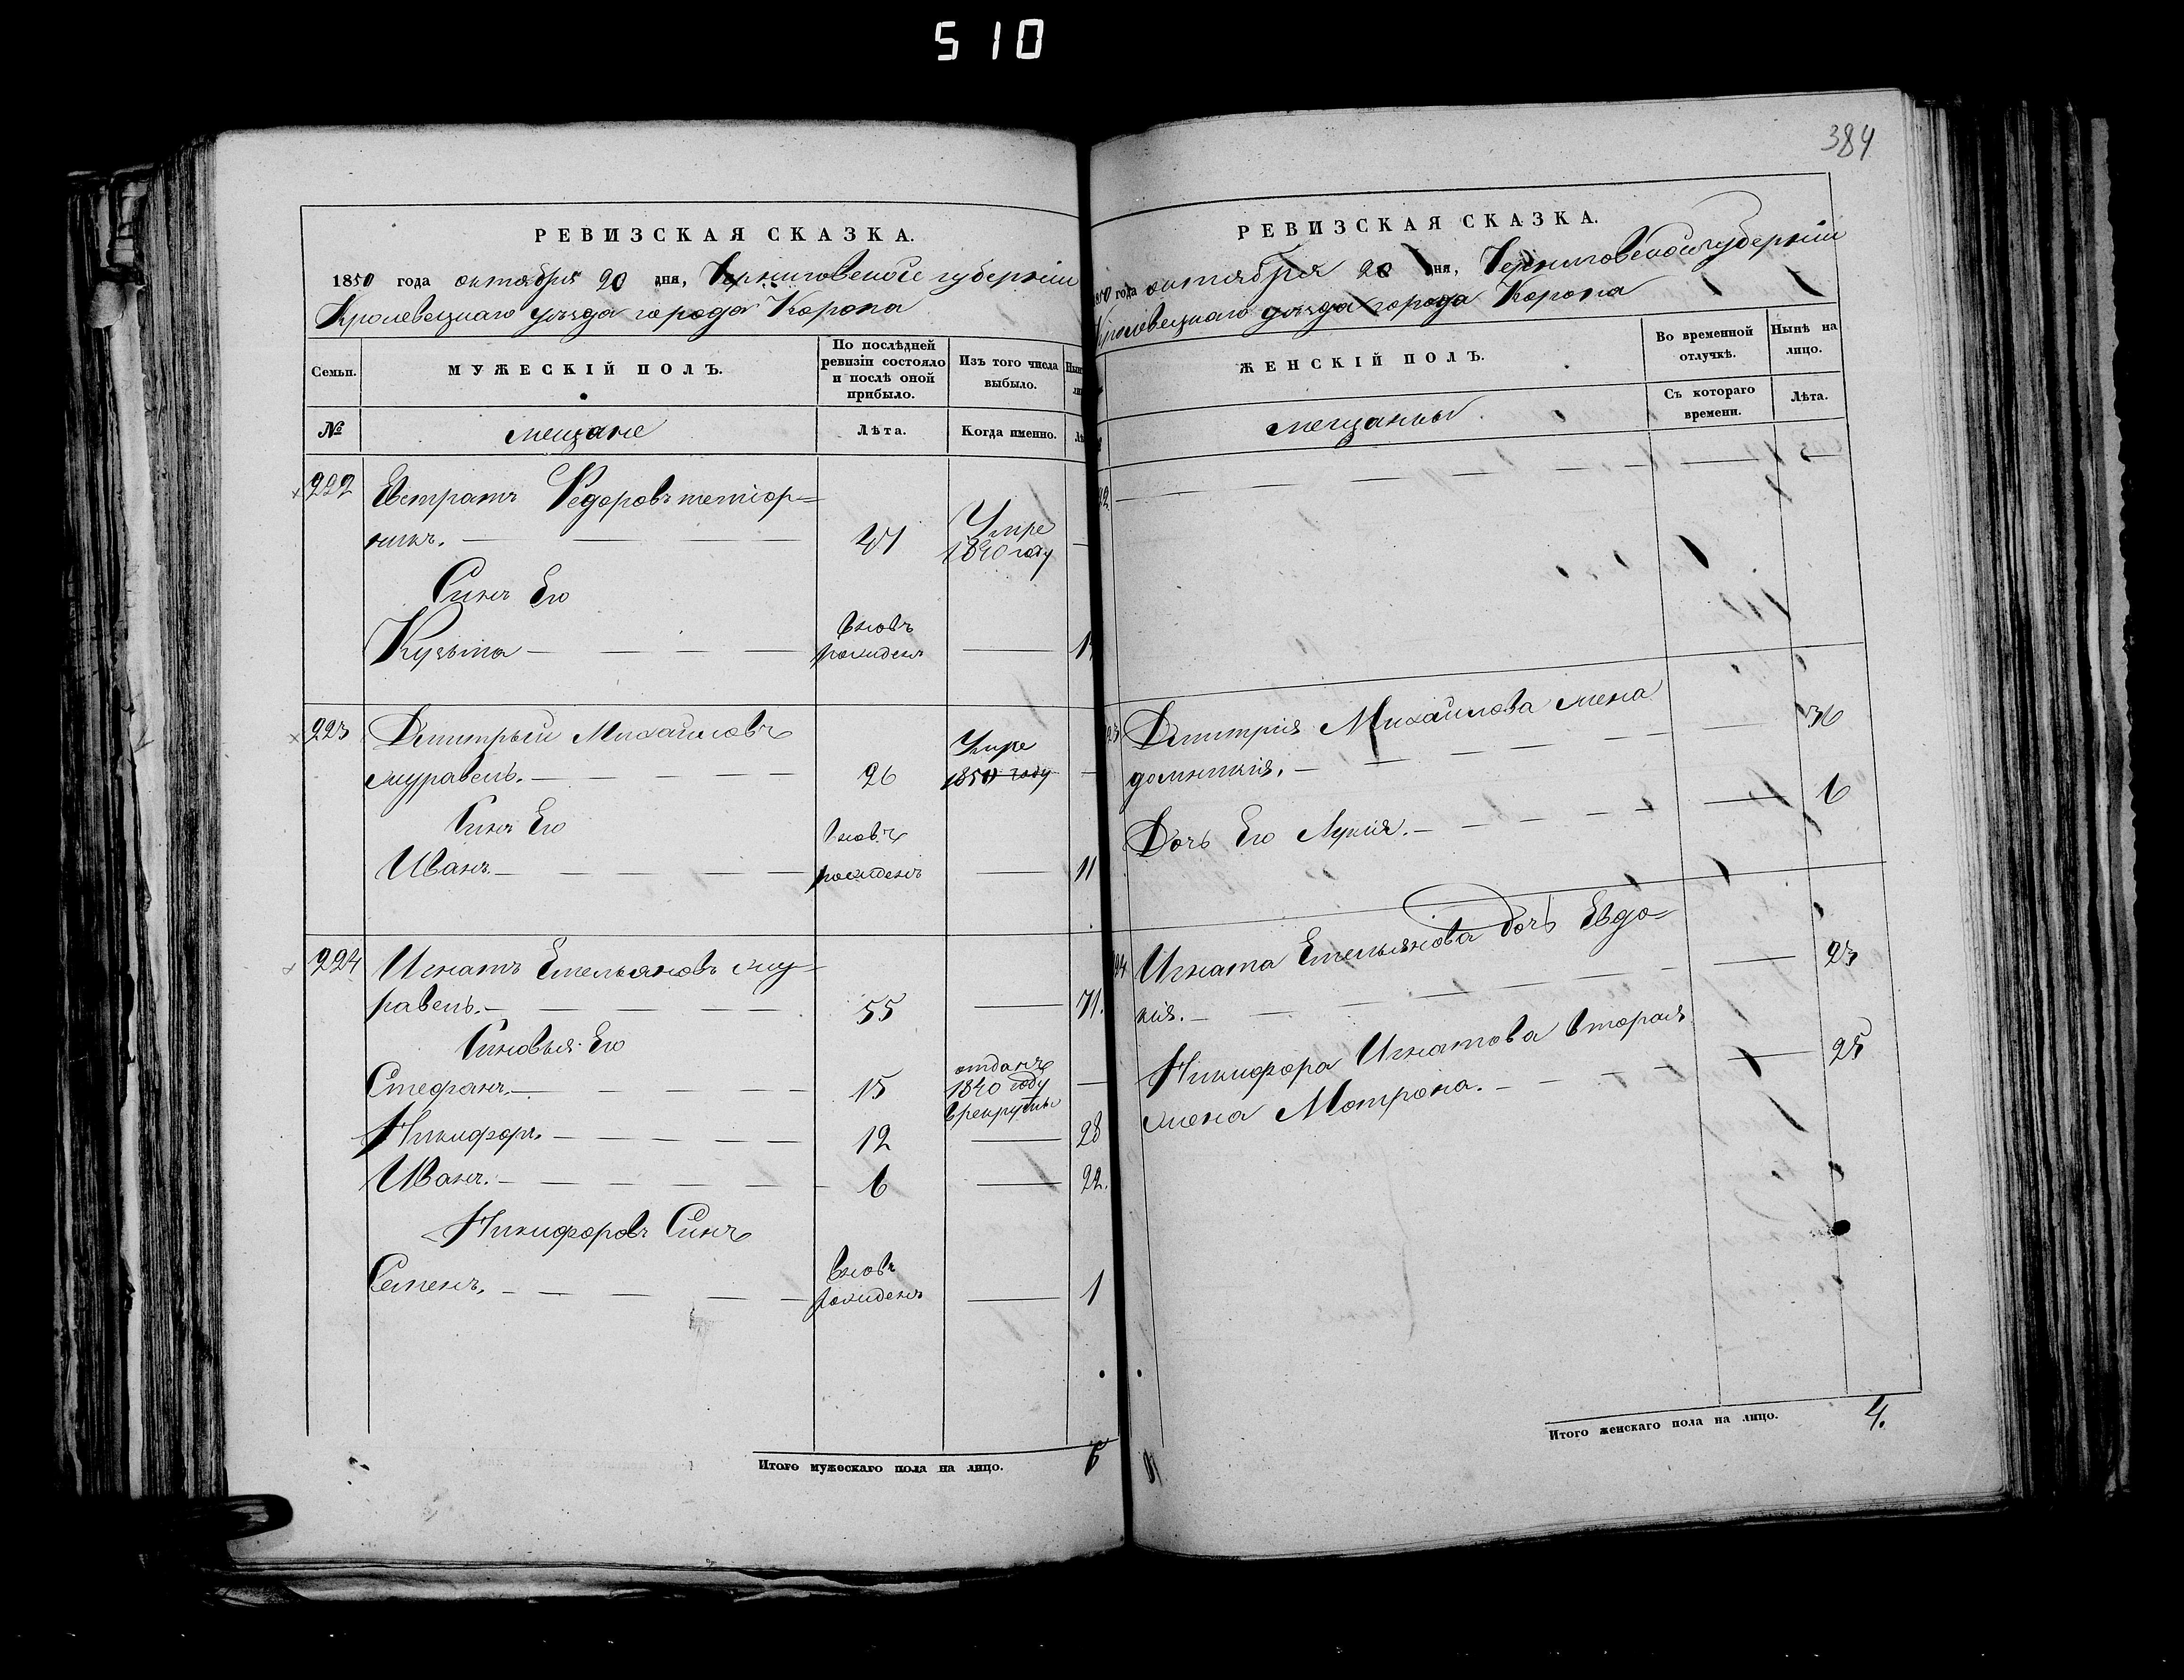 510
384
РЕВИЗСКАЯ СКАЗКА.
1850 года октября 20 дня, Черниговской губерніи
Кролевецкаго уѣзда города Коропа
Семьи.
МУЖЕСКІЙ ПОЛЪ.
По послѣдней
ревизіи состояло
и послѣ оной
прибыло.
Изъ того числа
выбыло.
№
мещане
Лѣта.
Когда именно.
222
Евстратъ Федоровъ тетіор=
никъ.
47
Умре
1840 году
Синъ Его
Кузьма
вновь
рожденъ
223
Дмитрый Михайловъ
журавель.
26
Умре
1850 году
Синъ Его
Иванъ.
вновъ
рожденъ
11
224
Игнатъ Емельяновъ жу=
равель.
55
71.
Синовья Его
Стефанъ.
15
отданъ
1840 году
в рекруты
Никифоръ.
12
28
Иванъ.
6
22.
Никифоровъ Синъ
Семенъ.
вновь
рожденъ
1
Итого мужескаго пола на лицо.
6
РЕВИЗСКАЯ СКАЗКА.
1850 года октября 20 дня, Черниговской губерніи
Кролевецкаго уѣзда города Коропа
ЖЕНСКІЙ ПОЛЪ.
Во временной
отлучкѣ.
Нынѣ на
лицо.
мещанки
Съ котораго
времени.
Лѣта.
Дмитрія Михайлова жена
домникія.
36
Дочь Его Лукія.
6
Игната Емельянова дочь Евдо=
кія.
23
Никифора Игнатова вторая
жена Мотрона.
25
Итого женскаго пола на лицо.
4.